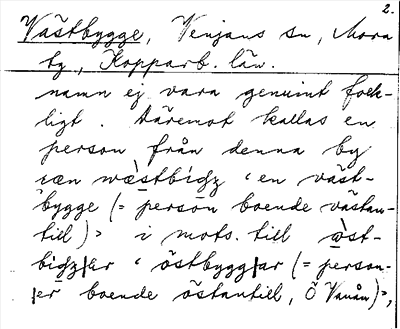 2.
Västbygge, Venjans sn, Mora
tg, Kopparb. län.
namn ej vara genuint folk-
ligt. Däremot kallas en
person från denna by
wæ̀stbíd̦z ‘en väst-
bygge (= person boende västan-
till)’ i mots. till
‘östbyggar (= person-
er boende östantill, Ö Vanån)’,